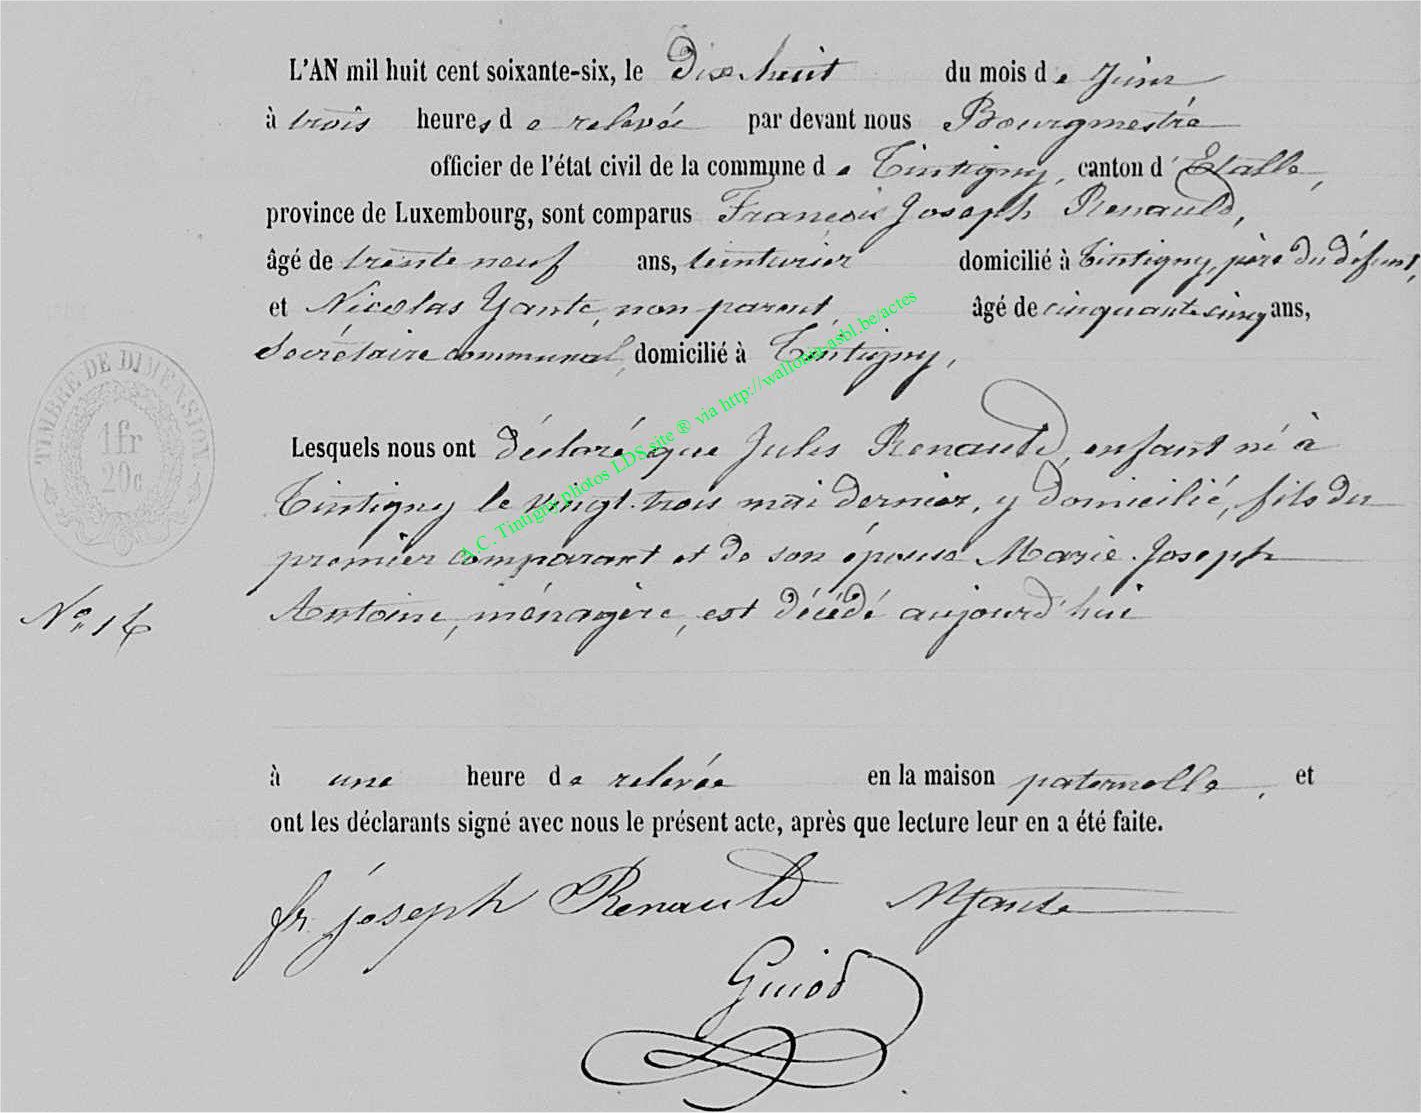 L'AN mil huit cent soixante-six, le Dix huit du mois de Juin
à trois heures de relevée par devant nous Bourgmestre
officier de l'état civil de la commune de Tintigny, canton d'Etalle,
province de Luxembourg, sont comparus François Joseph Renauld,
âgé de trente neuf ans, teinturier domicilié à Tintigny, père du défunt,
et Nicolas Yante, non parent, âgé de cinquante cinq ans,
Secrétaire communal, domicilié à Tintigny,
TIMBRE DE DIMENSION
1fr
20c
Lesquels nous ont déclaré que Jules Renauld, enfant né à
Tintigny le vingt-trois mai dernier, y domicilié, fils du
premier comparant et de son épouse Marie-Joseph
Antoine, ménagère, est décédé aujourd'hui
No. 16
à une heure de relevée en la maison paternelle, et
ont les déclarants signé avec nous le présent acte, après que lecture leur en a été faite.
fr. joseph Renauld NYante
Guiod
A.C. Tintigny photos LDS site ® via http://wallonia-asbl.be/actes